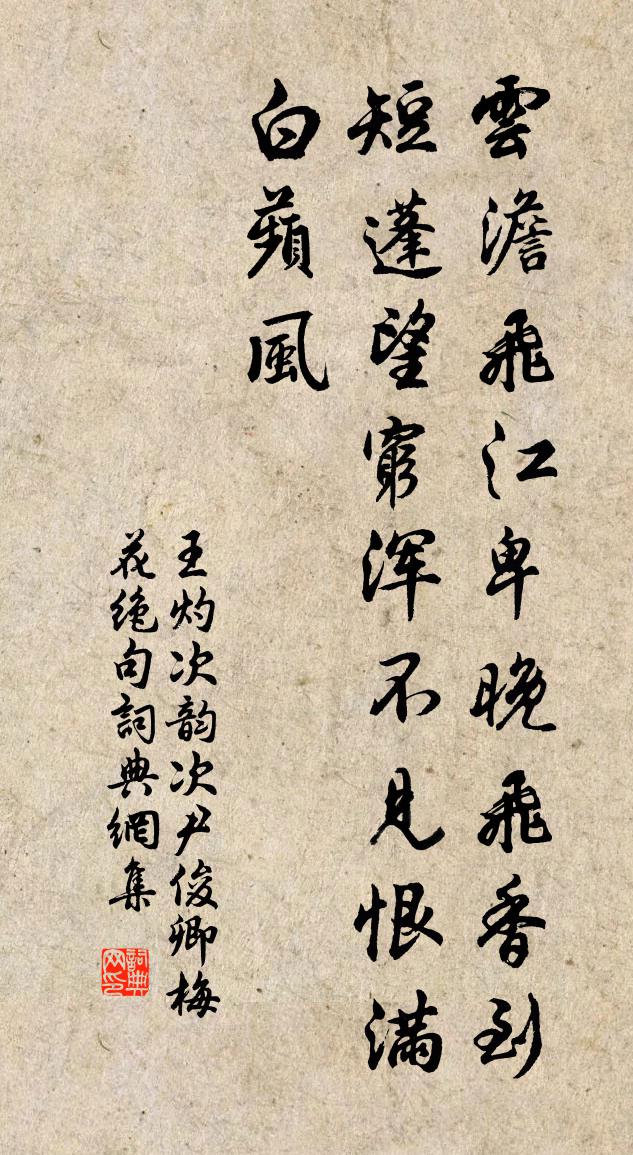 雲澹飛江卑晚飛香到
短蓬望窮渾不見恨滿
白蘋風
王灼次韵次尹俊卿梅
花絶句詞典網集
詞典网印